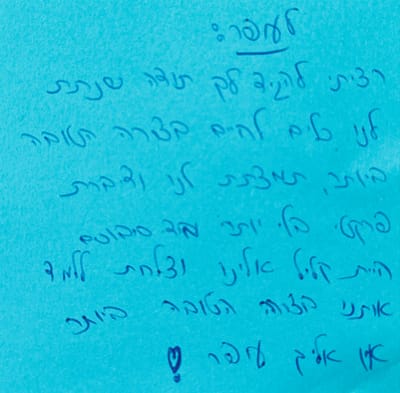 לעופר:
רציתי להגיד לך תודה שנתת
לנו כלים לחיים בצורה הטובה
ביותר, תמצתת לנו ודיברת
פרקטי בלי יותר מיד סיבוכים
היית קליל אלינו וצלחת ללמד
אותנו בצורה הטובה ביותר
אין אליך עופר!